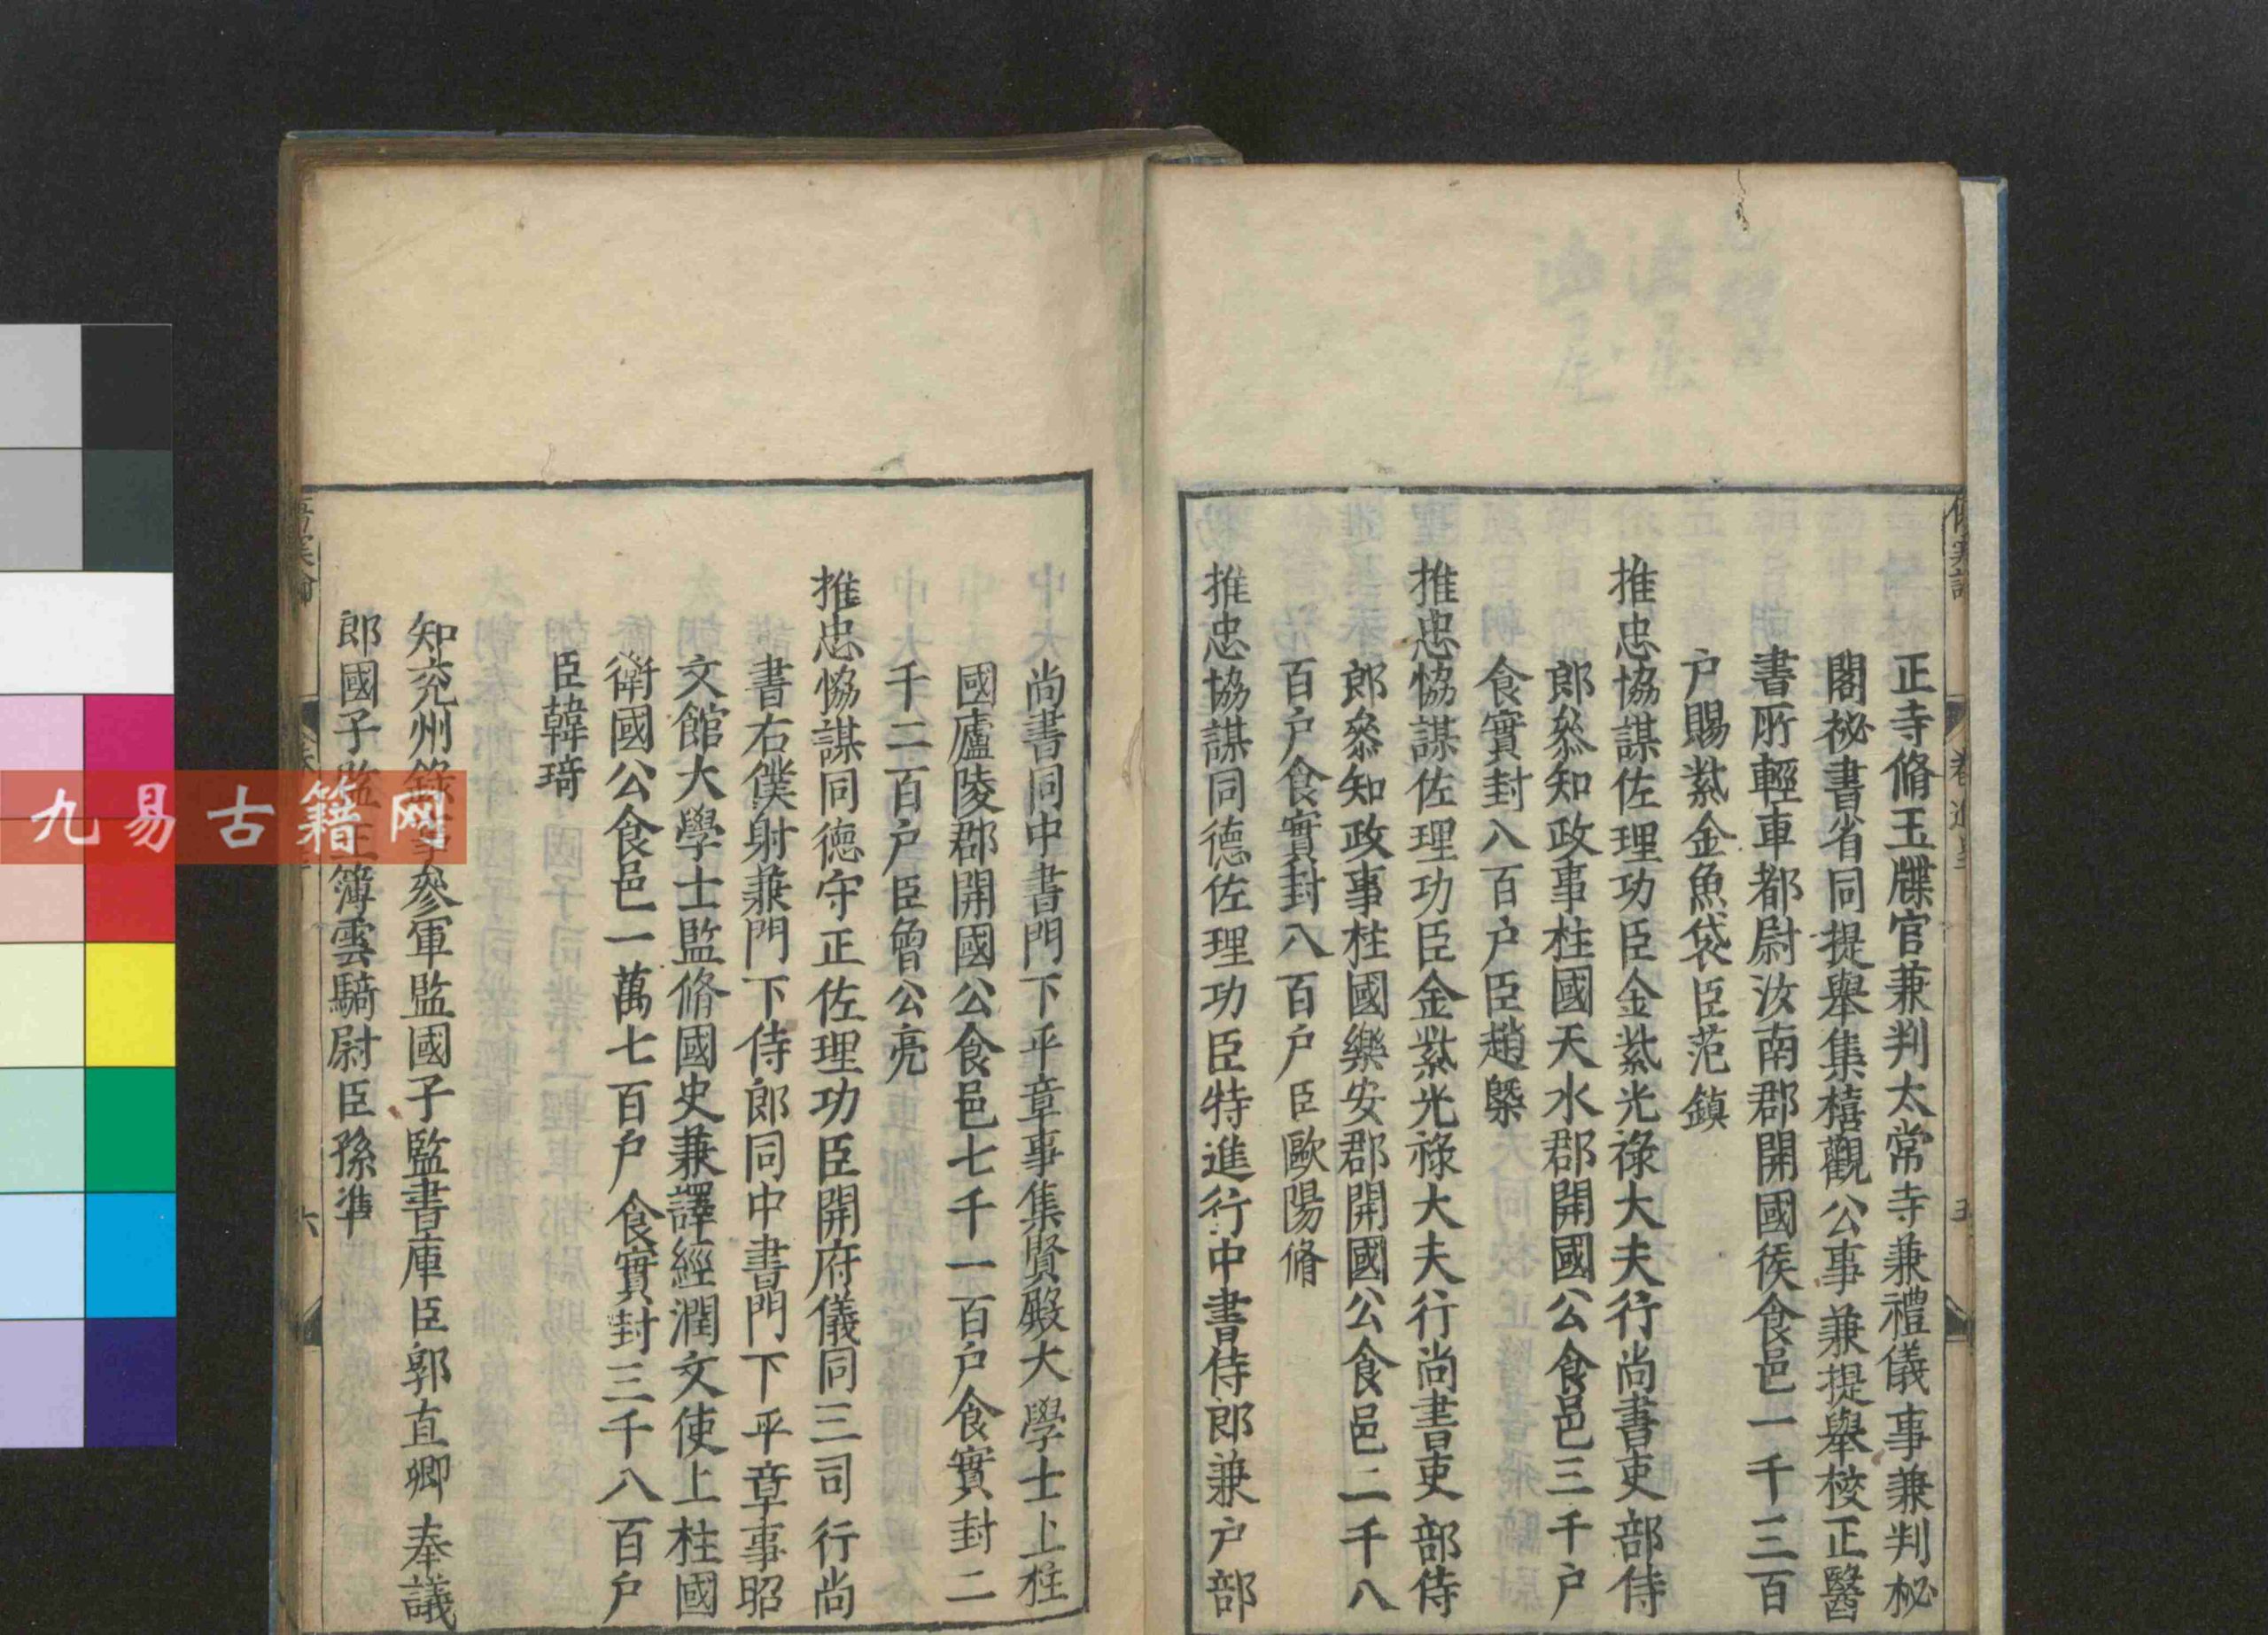 正寺脩玉牒官兼判太常寺兼禮儀事兼判秘
閣祕書省同提舉集禧觀公事兼提舉校正醫
書所輕車都尉汝南郡開國侯食邑一千三百
户賜紫金魚袋臣范鎮
推忠協謀佐理功臣金紫光祿大夫行尚書吏部侍
郎叅知政事柱國天水郡開國公食邑三千户
食實封八百户臣趙槩
推忠恊謀佐理功臣金紫光祿大夫行尚書吏部侍
郎叅知政事柱國樂安郡開國公食邑二千八
百户食實封八百户臣歐陽脩
推忠協謀同德佐理功臣特進行中書侍郎兼户部
尚書同中書門下平章事集賢殿大學士上柱
國廬陵郡開國公食邑七千一百户食實封二
千二百户臣曾公亮
推忠恊謀同德守正佐理功臣開府儀同三司行尚
書右僕射兼門下侍郎同中書門下平章事昭
文館大學士監脩國史兼譯經潤文使上柱國
衛國公食邑一萬七百户食實封三千八百户
臣韓琦
知兖州錄事參軍監國子監書庫臣郭直卿奉議
郎國子監主簿雲騎尉臣孫準
六
九易古籍网